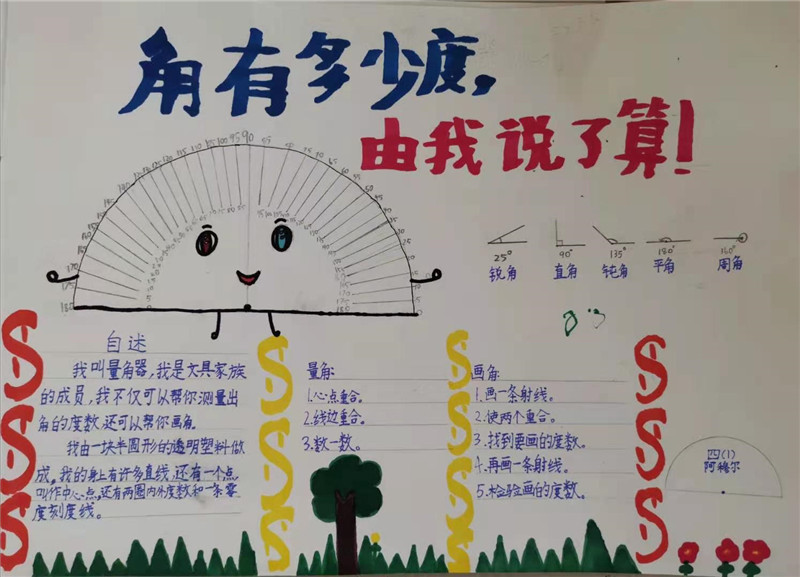 角有多少度，
由我说了算！
25°
90°
135°
180°
160°
锐角
直角
钝角
平角
周角
自述
我叫量角器，我是文具家族
的成员，我不仅可以帮你测量出
角的度数，还可以帮你画角。
我由一块半圆形的透明塑料做
成。我的身上有许多直线，还有一个点，
叫作中心点，还有两圈内外度数和一条零
度刻度线。
量角：
1.心点重合。
2.线边重合。
3.数一数。
画角：
1.画一条射线。
2.使两个重合。
3.找到要画的度数。
4.再画一条射线。
5.检验画的度数。
四(1)
阿穆尔